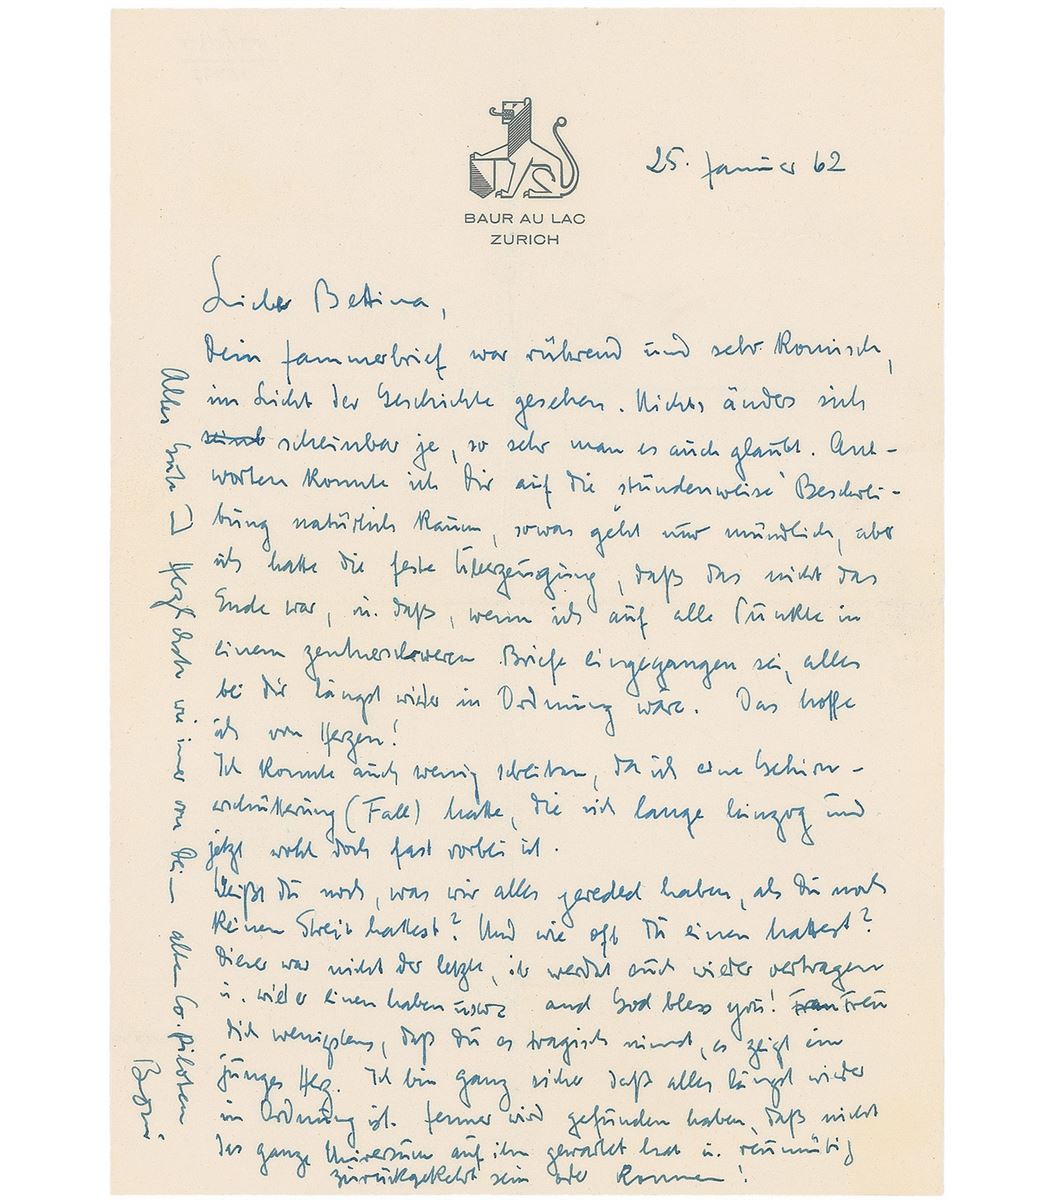 BAUR AU LAC
ZÜRICH
25. Januar 62
Liebe Bettina,
Dein Jammerbrief war rührend und sehr komisch,
im Licht der Geschichte gesehen. Nichts ändert sich
scheinbar je, so sehr man es auch glaubt. Ant-
worten konnte ich Dir auf die stundenweise Beschrei-
bung natürlich kaum, sowas geht nur mündlich, aber
ich hatte die feste Überzeugung, daß das nicht das
Ende war, u. daß, wenn ich auf alle Punkte in
einem zentnerschweren Briefe eingegangen sei, alles
bei Dir längst wieder in Ordnung wäre. Das hoffe
ich von Herzen!
Ich konnte auch wenig schreiben, da ich eine Gehirn-
erschütterung (Fall) hatte, die sich lange hinzog und
jetzt wohl doch fast vorbei ist.
Weißt Du noch, was wir alles geredet haben, als Du noch
keinen Streit hattest? Und wie oft Du einen hattest?
Dieser war nicht der letzte, ihr werdet euch wieder vertragen
u. wieder einen haben usw. and God bless you! Freu
Dich wenigstens, daß Du es tragisch nimmst, es zeigt ein
junges Herz. Ich bin ganz sicher daß alles längst wieder
in Ordnung ist. Jemmer wird gefunden haben, daß nicht
das ganze Universum auf ihn gewartet hat u. reumütig
zurückgekehrt sein oder kommen!
Alles Gute und Herzlichste wie immer von Deinem alten Co-piloten
Boni